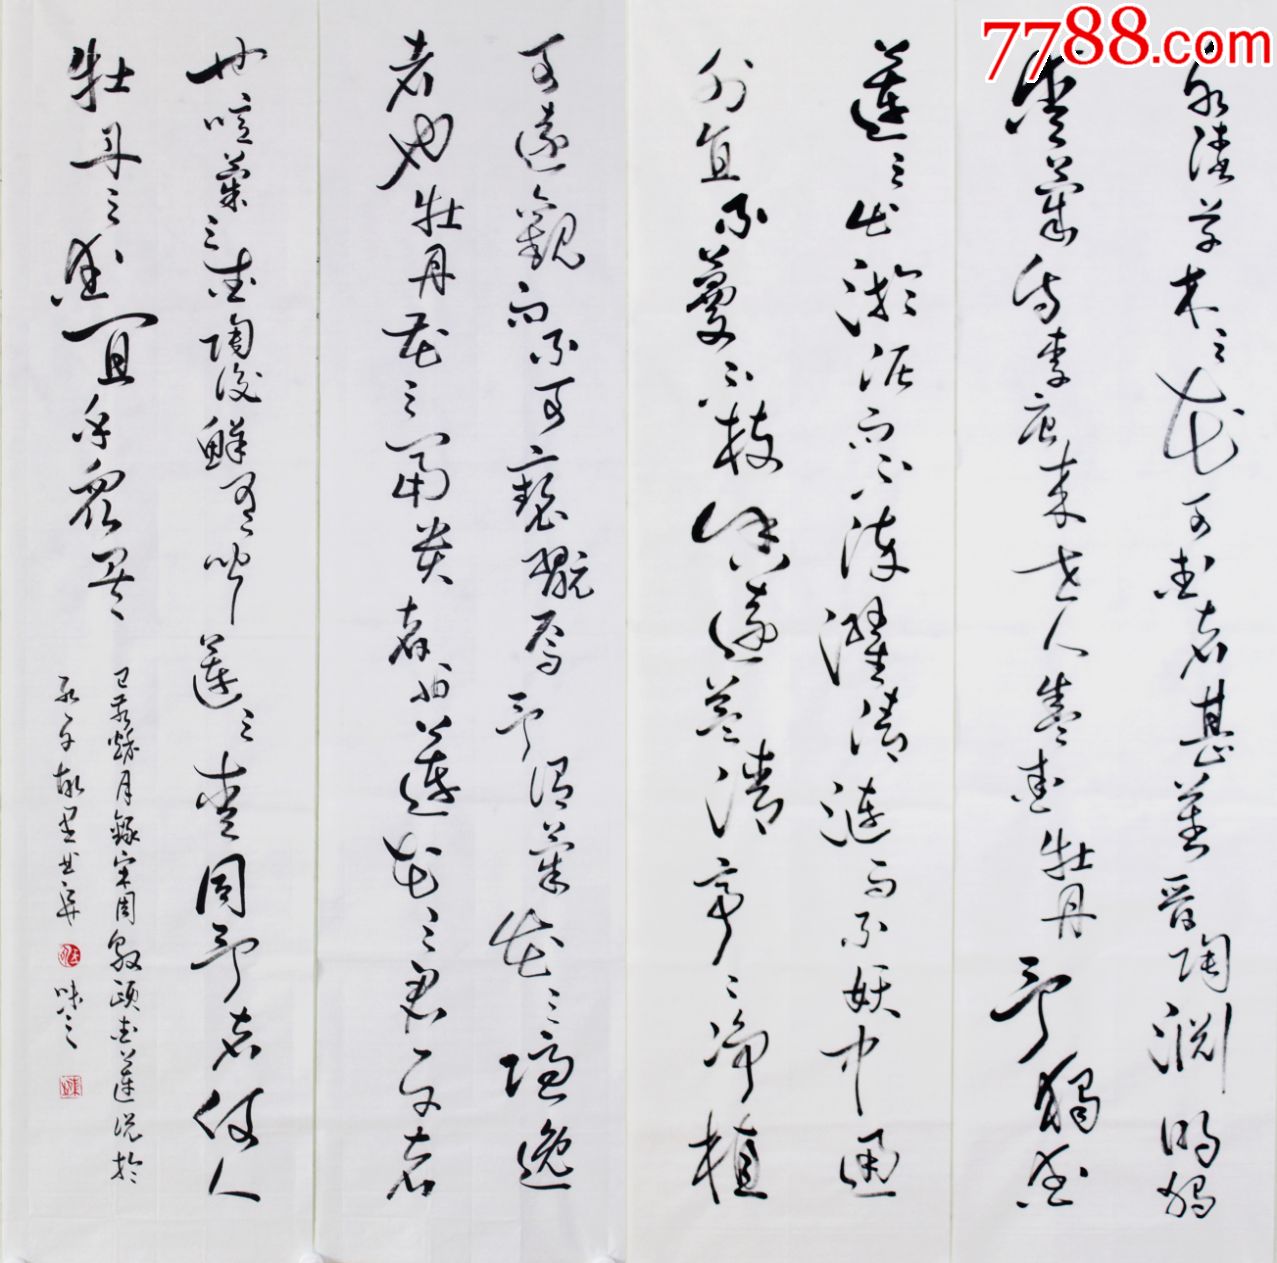 7788.com
水陸草木之花可愛者甚蕃晉陶淵明獨
愛菊自李唐来世人盛愛牡丹予獨愛
蓮之出淤泥而不染濯清漣而不妖中通
外直不蔓不枝香遠益清亭〻淨植
可遠觀而不可褻翫焉予謂菊花之隱逸
者也牡丹花之富貴者也蓮花之君子者
也噫菊之愛陶後鮮有聞蓮之愛同予者何人
牡丹之愛宜乎眾矣
己亥月錄宋周敦頤愛蓮說於